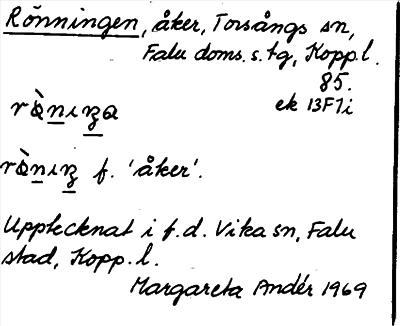 Rönningen, åker, Torsångs sn,
Falu doms.s.tg, Kopp.l.
85.
ek 13F7i
f. 'åker'.
Upptecknat i f.d. Vika sn, Falu
stad, Kopp.l.
Margareta Andér 1969